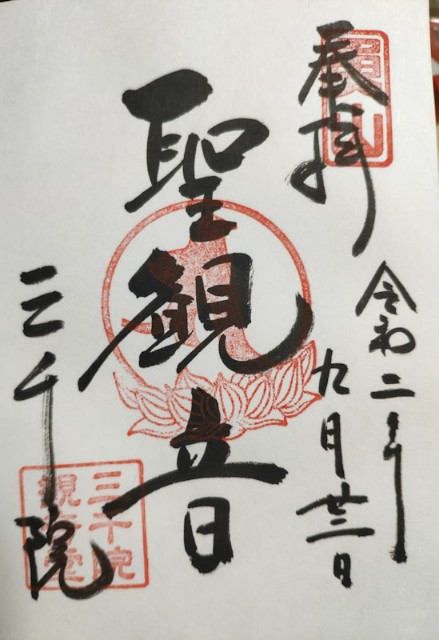 奉拝
魚山
令和二年
九月廿三日
聖観音
三千院
三千院
観音堂